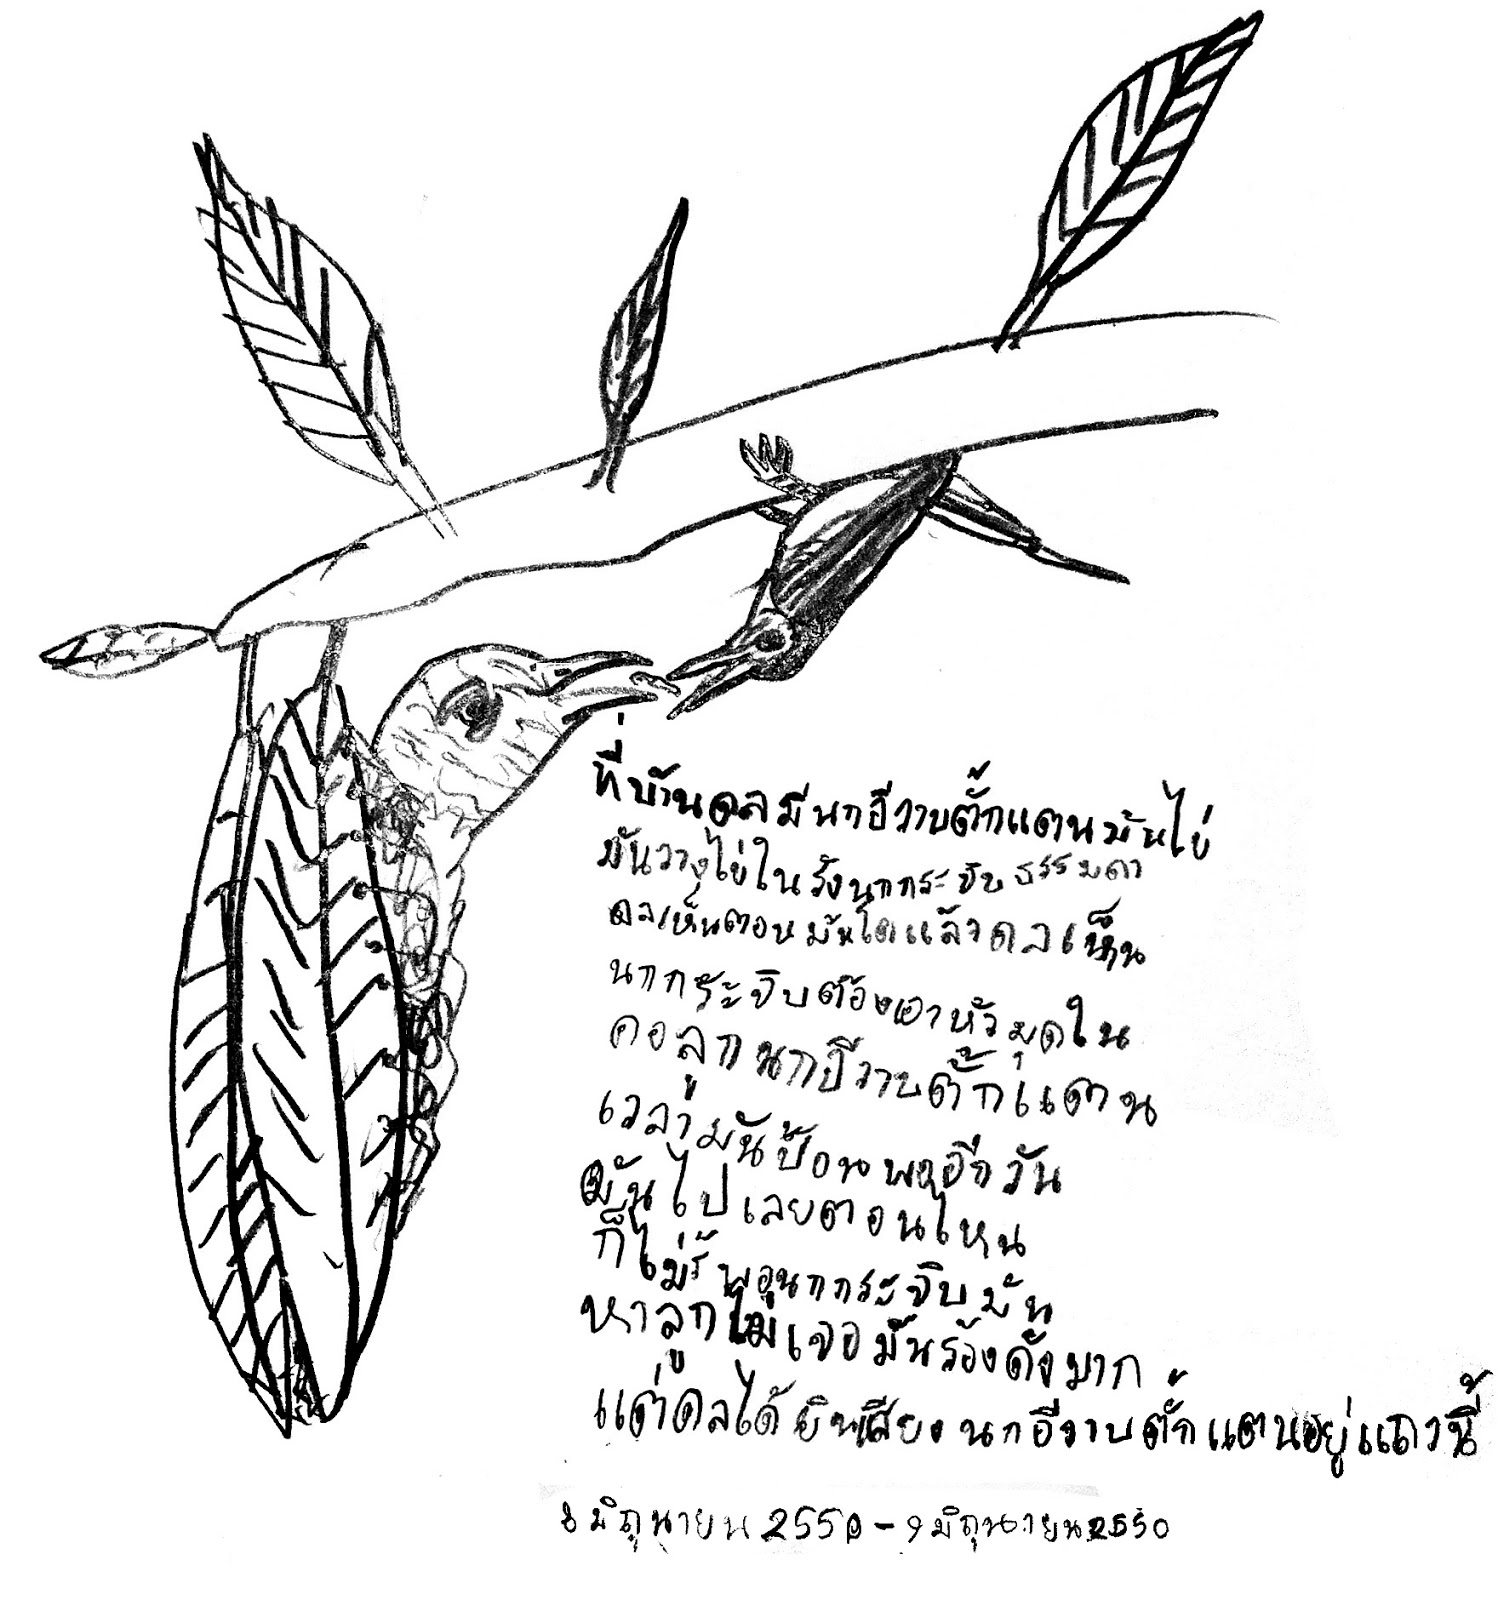 ที่บ้านดลมีนกอีวาบตั๊กแตนมันไข่
มันวางไข่ในรังนกกระจิบธรรมดา
ดลเห็นตอนมันโตแล้วดลเห็น
นกกระจิบต้องเอาหัวมุดใน
คอลูกนกอีวาบตั๊กแตน
เวลามันป้อนพออีกวัน
มันไปเลยตอนไหน
ก็ไม่รู้พอนกกระจิบมัน
หาลูกไม่เจอมันร้องดังมาก
แต่ดลได้ยินเสียงนกอีวาบตั๊กแตนอยู่แถวนี้
8 มิถุนายน 2550 - 9 มิถุนายน 2550